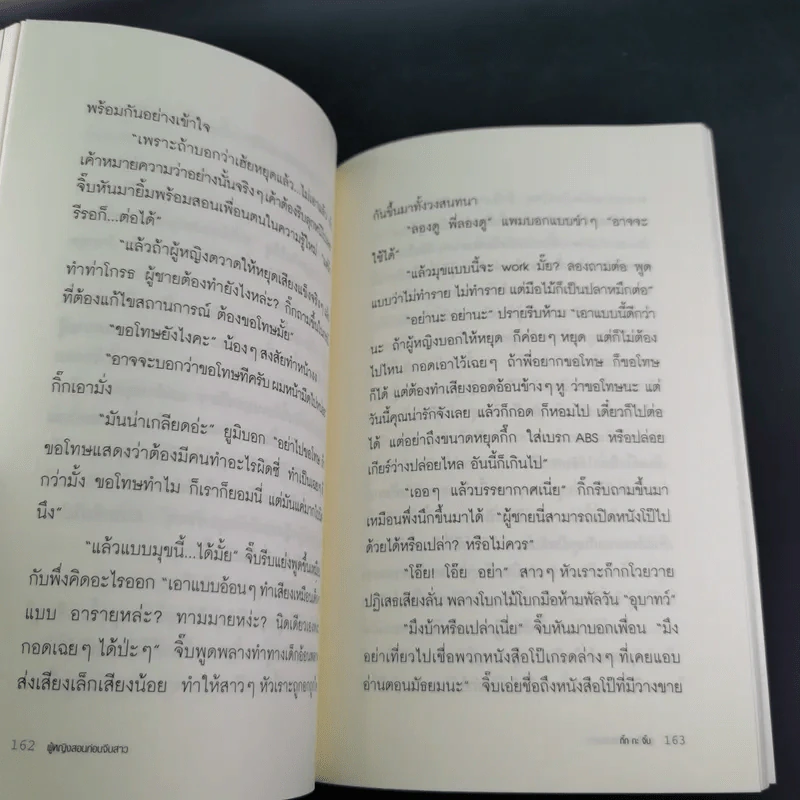 พร้อมกันอย่างเข้าใจ
“เพราะถ้าบอกว่าเฮ้ยหยุดแล้ว...ไม่เอาแล้ว
เค้าหมายความว่าอย่างนั้นจริงๆ เค้าต้องรีบลุก
จิ๊บหันมายิ้มพร้อมสอนเพื่อนตนในความรู้ใหม่
รีรอก็...ต่อได้”
“แล้วถ้าผู้หญิงตวาดให้หยุดเสียงแข็งจริงๆ
ทำท่าโกรธ ผู้ชายต้องทำยังไงหล่ะ? กิ๊กถามขึ้น
ที่ต้องแก้ไขสถานการณ์ ต้องขอโทษมั้ย”
“ขอโทษยังไงคะ” น้องๆ สงสัยทำหน้างง
“อาจจะบอกว่าขอโทษทีครับ ผมหน้ามืดไป
กิ๊กเอามั่ง
“มันน่าเกลียดอ่ะ” ยูมิบอก “อย่าไปขอโทษ
ขอโทษแสดงว่าต้องมีคนทำอะไรผิดซี่ ทำเป็นเฉยๆ
กว่ามั้ง ขอโทษทำไม ก็เราก็ยอมนี่ แต่มันแค่มาก
นึง”
“แล้วแบบมุขนี้...ได้มั้ย” จิ๊บรีบแย่งพูดขึ้น
กับพึ่งคิดอะไรออก “เอาแบบอ้อนๆ ทำเสียงเหมือน
แบบ อารายหล่ะ? ทามมายหง่ะ? นิดเดียว
กอดเฉยๆ ได้ป่ะๆ” จิ๊บพูดพลางทำทางเด็กอ้อน
ส่งเสียงเล็กเสียงน้อย ทำให้สาวๆ หัวเราะถูก
162 ผู้หญิงสอนก่อนจีบสาว
กันขึ้นมาทั้งวงสนทนา
“ลองดู พี่ลองดู” แพมบอกแบบขำๆ “อาจจะ
ใช้ได้”
“แล้วมุขแบบนี้จะ work มั้ย? ลองถามต่อ พูด
แบบว่าไม่ทำราย ไม่ทำราย แต่มือไม้ก็เป็นปลาหมึกต่อ”
“อย่านะ อย่านะ” ปรายรีบห้าม “เอาแบบนี้ดีกว่า
นะ ถ้าผู้หญิงบอกให้หยุด ก็ค่อยๆ หยุด แต่ก็ไม่ต้อง
ไปไหน กอดเอาไว้เฉยๆ ถ้าพี่อยากขอโทษ ก็ขอโทษ
ก็ได้ แต่ต้องทำเสียงออดอ้อนข้างๆ หู ว่าขอโทษนะ แต่
วันนี้คุณน่ารักจังเลย แล้วก็กอด ก็หอมไป เดี๋ยวก็ไปต่อ
ได้ แต่อย่าถึงขนาดหยุดกึ๊ก ใส่เบรก ABS หรือปล่อย
เกียร์ว่างปล่อยไหล อันนี้ก็เกินไป”
“เออๆ แล้วบรรยากาศเนี่ย” กิ๊กรีบถามขึ้นมา
เหมือนพึ่งนึกขึ้นมาได้ “ผู้ชายนี่สามารถเปิดหนังโป๊ไป
ด้วยได้หรือเปล่า? หรือไม่ควร”
“โอ๊ย! โอ๊ย อย่า” สาวๆ หัวเราะก๊ากโวยวาย
ปฏิเสธเสียงลั่น พลางโบกไม้โบกมือห้ามพัลวัน “อุบาทว์”
“มึงบ้าหรือเปล่าเนี่ย” จิ๊บหันมาบอกเพื่อน “มึง
อย่าเที่ยวไปเชื่อพวกหนังสือโป๊เกรดล่างๆ ที่เคยแอบ
อ่านตอนมัธยมนะ” จิ๊บเอ่ยชื่อถึงหนังสือโป๊ที่มีวางขาย
กิ๊ก กะ จิ๊บ 163